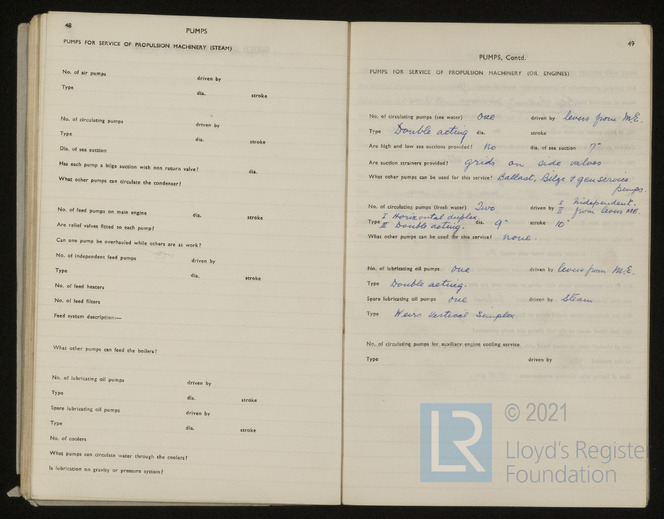 48
PUMPS
PUMPS FOR SERVICE OF PROPULSION MACHINERY (STEAM)
No. of air pumps driven by
Type dia. stroke
No. of circulating pumps driven by
Type dia. stroke
Dia. of sea suction
Has each pump a bilge suction with non return valve? dia.
What other pumps can circulate the condenser?
No. of feed pumps on main engine dia. stroke
Are relief valves fitted to each pump?
Can one pump be overhauled while others are at work?
No. of independent feed pumps driven by
Type dia. stroke
No. of feed heaters
No. of feed filters
Feed system description:—
What other pumps can feed the boilers?
No. of lubricating oil pumps driven by
Type dia. stroke
Spare lubricating oil pumps driven by
Type dia. stroke
No. of coolers
What pumps can circulate water through the coolers?
Is lubrication on gravity or pressure system?
49
PUMPS, Contd.
PUMPS FOR SERVICE OF PROPULSION MACHINERY (OIL ENGINES)
No. of circulating pumps (sea water) One driven by levers from M.E.
Type Double acting dia. stroke
Are high and low sea suctions provided? No dia. of sea suction 9"
Are suction strainers provided? grids on side valves
What other pumps can be used for this service? Ballast, Bilge & gen service
pumps
No. of circulating pumps (fresh water) Two driven by I Independent.
II from levers ME.
Type I Horizontal duplex
II Double acting. dia. 9" stroke 10"
What other pumps can be used for this service? None.
No. of lubricating oil pumps One driven by levers from M.E.
Type Double acting.
Spare lubricating oil pumps One driven by Steam
Type Weirs Vertical Simplex
No. of circulating pumps for auxiliary engine cooling service
Type driven by
LR
© 2021
Lloyd's Register
Foundation